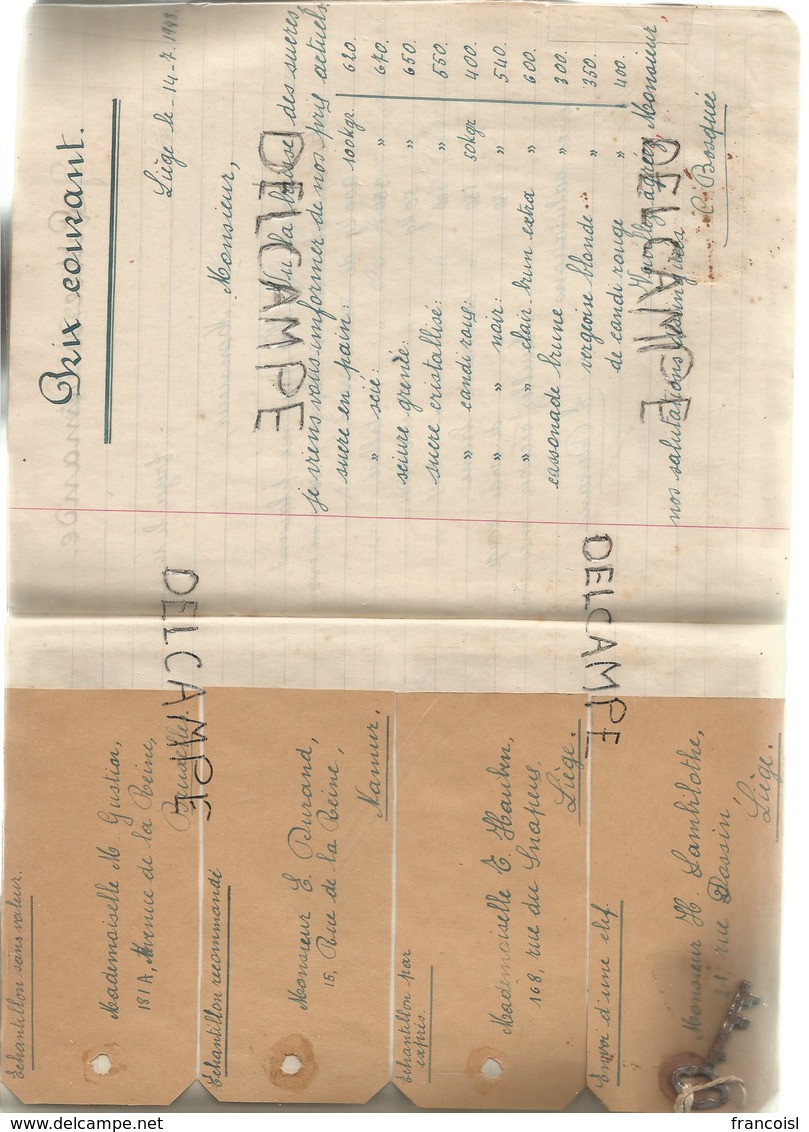 Prix courant.
Liège le - 14 - 7. 19
Monsieur,
Vu la des sucres,
je viens vous informer de nos prix actuels.
sucre en pain: 100kgr. 620.
" scié: " 640.
sciure grenée: " 650.
sucre cristallisé: " 550.
" candi roug: 50kgr 400.
" " noir: " 540.
" " clair brun extra " 600.
cassonade brune " 300.
" vergeoise blonde " 350.
de candi rouge " 400.
agréez Monsieur,
nos salutations
C. Bosquée
Echantillon sans valeur.
Mademoiselle M Gustin,
181A, Avenue de la Reine,
Bruxelles.
Echantillon recommandé
Monsieur E. Durand,
15, Rue de la Reine,
Namur.
Echantillon par
exprès.
Mademoiselle E.
168, rue du
Liège.
Envoi d'une clef.
Monsieur H. Lambilothe,
rue Dassin
Liège.
DELCAMPE
DELCAMPE
DELCAMPE
DELCAMPE
francoisl